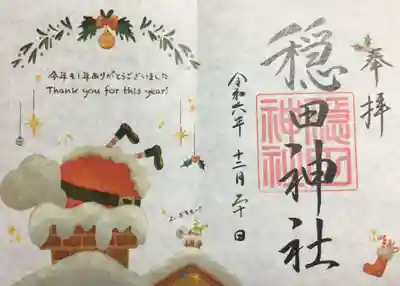 今年も1年ありがとうございました
Thank you for this year!
奉拝
穏田神社
穏田神社
令和六年 十二月二十日